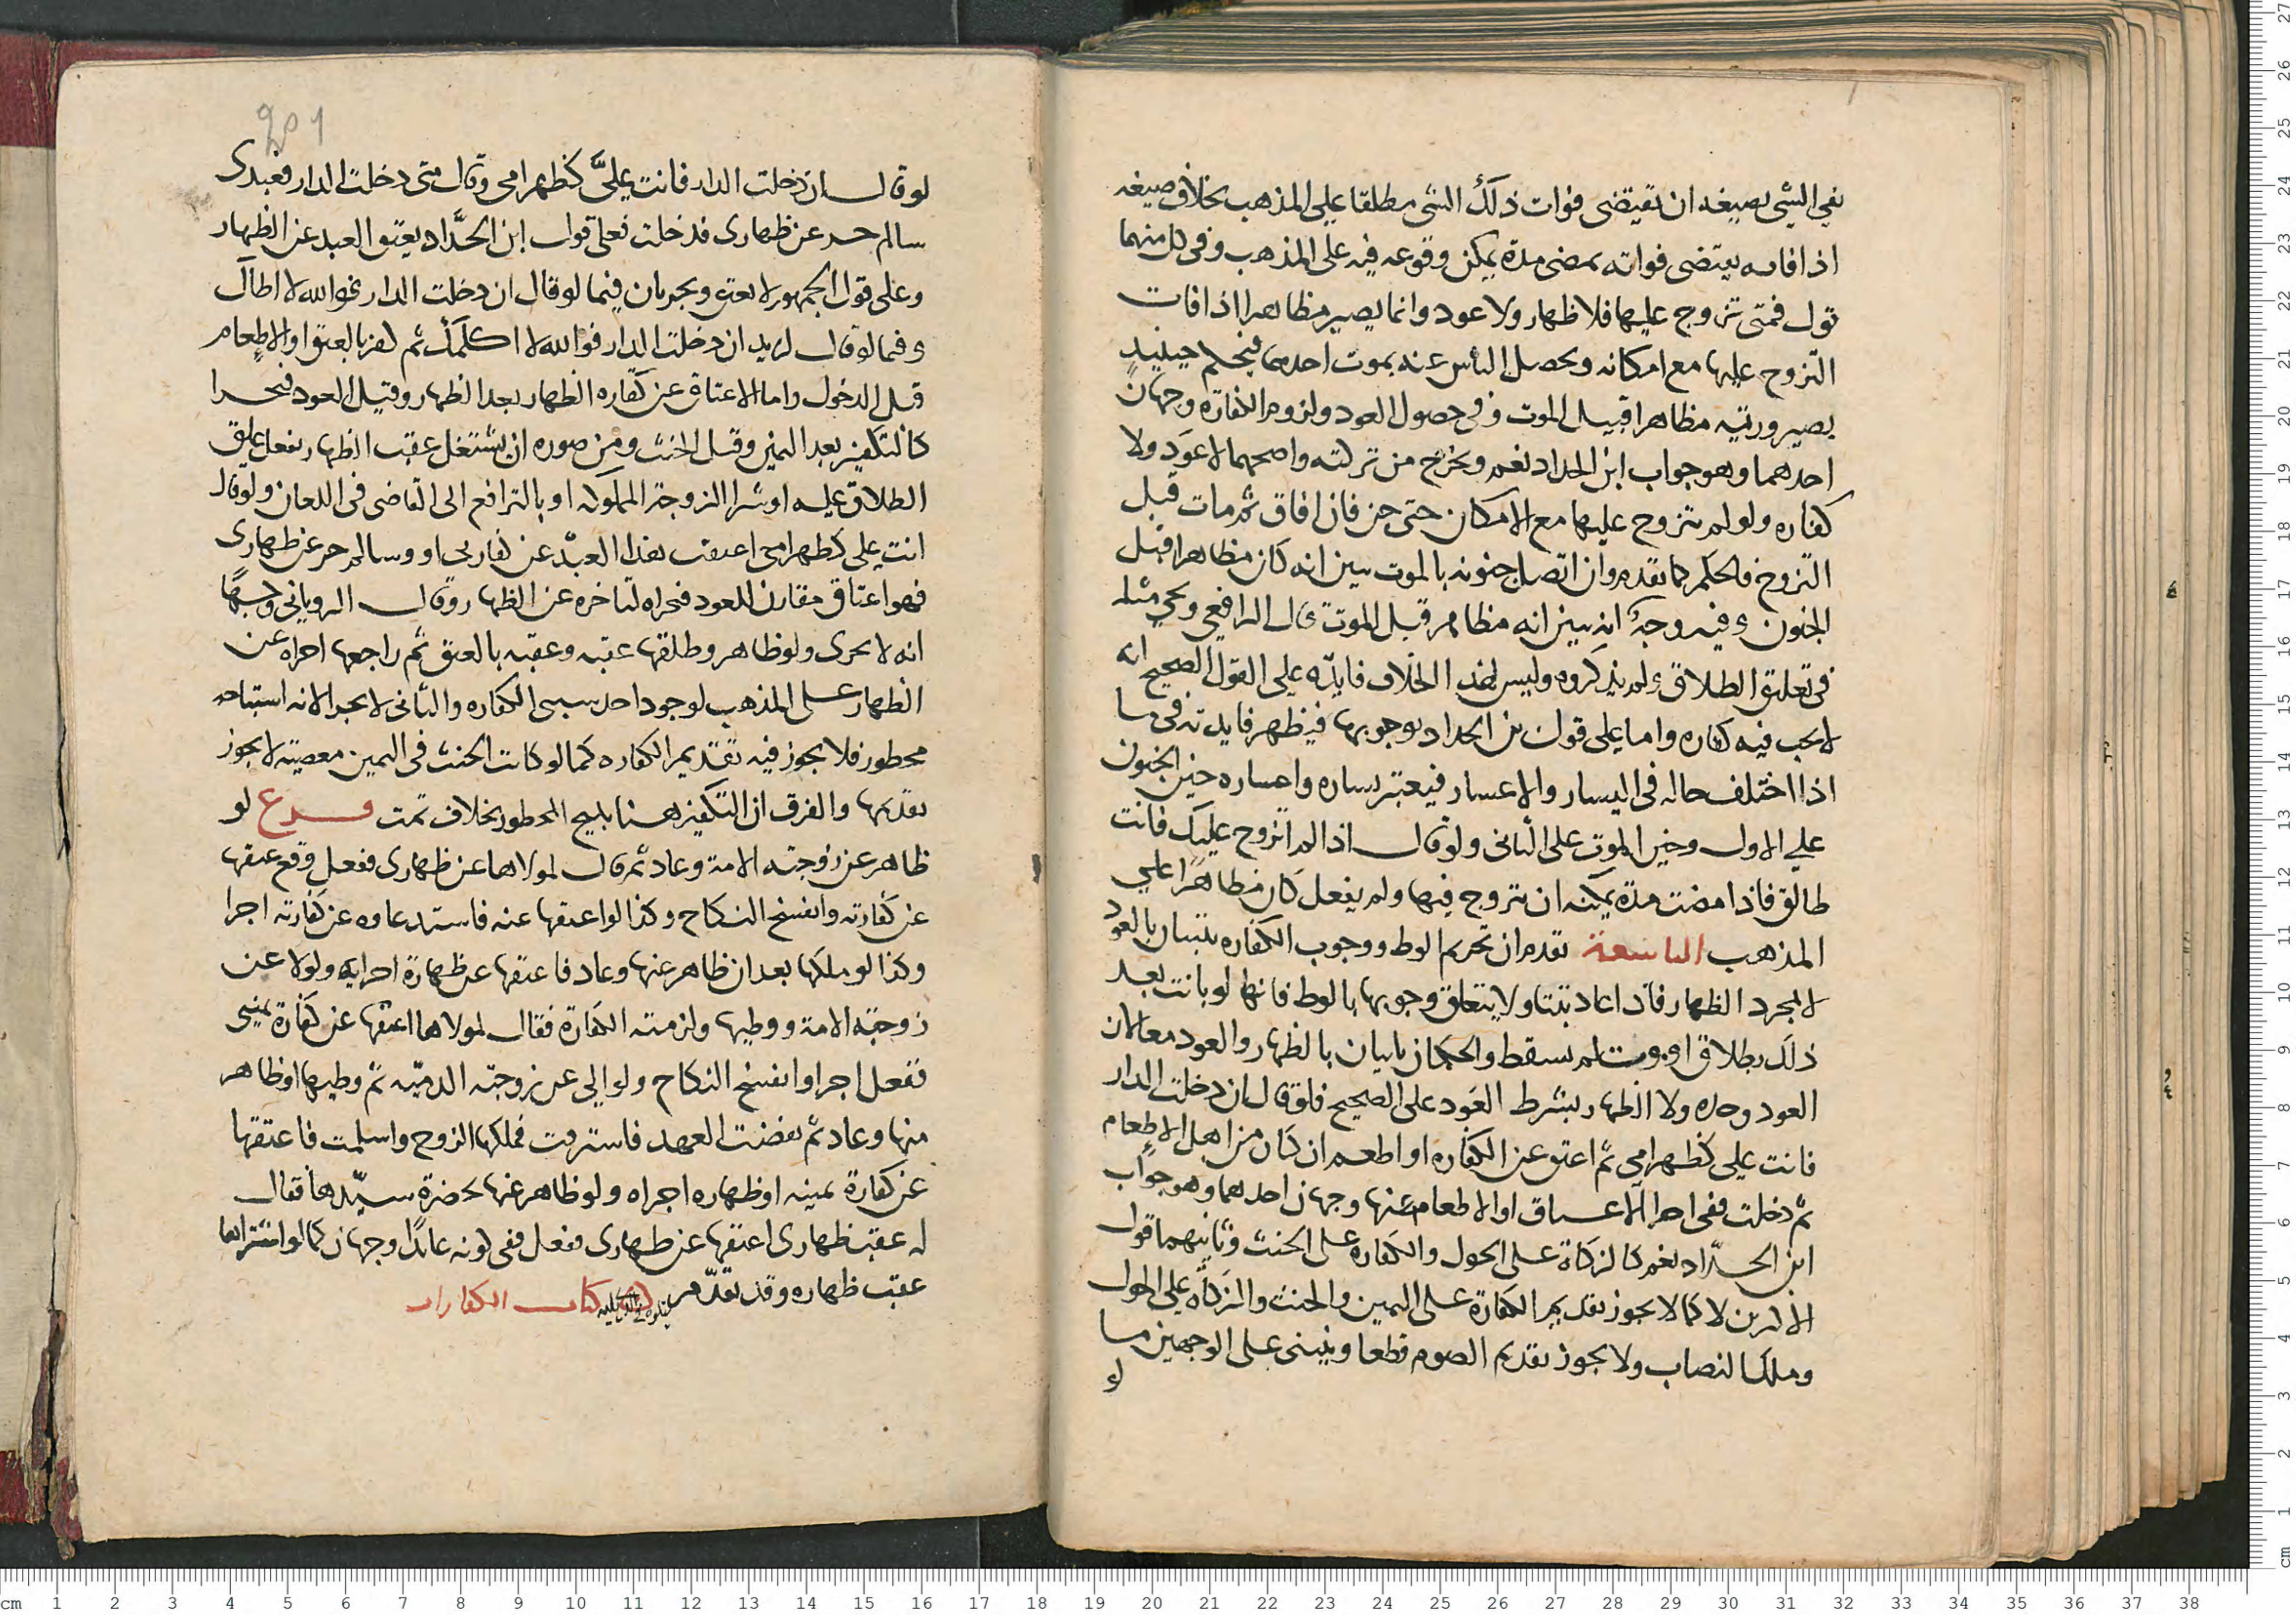 نفي الشي بصيغه ان تقتضى فوات ذلك الشى مطلقا على المذهب بخلاف صيغه
اذا فانه يقتضى فواته بمضى مدة يمكن وقوعه فيه على المذهب وفى كل منهما
قول فمتى تزوج عليها فلا ظهار ولا عود وانما يصير مظاهرا اذا فات
التزوج عليها مع امكانه ويحصل الياس عنه بموت احدهما فيحكم حينيذ
بصيرورته مظاهرا قبيل الموت وفى حصول العود ولزوم الكفاره وجهان
احدهما وهو جواب ابن الحداد نعم ويخرج من تركته واصحهما لا عود ولا
كفاره ولو لم يتزوج عليها مع الامكان حتى جن فان افاق ثم مات قبل
التزوج فالحكم كما تقدم وان اتصل جنونه بالموت تبين انه كان مظاهرا قبل
الجنون وفيه وجه انه تبين انه مظاهر قبل الموت قال الرافعي ويجي مثله
فى تعليق الطلاق ولم يذكروه وليس لهذا الخلاف فايدة على القول الصحيح انه
لا يجب فيه كفاره واما على قول بن الحداد بوجوبها فيظهر فايدته فى ما
اذا اختلف حاله فى اليسار والاعسار فيعتبر يساره واعساره حين الجنون
على الاول وحين الموت على الثانى ولو قال اذا لم اتزوج عليك فانت
طالق فاذا مضت مدة يمكنه ان يتزوج فيها ولم يفعل كان مظاهرا على
المذهب التاسعة تقدم ان تحريم الوطء ووجوب الكفاره يثبتان بالعود
لا بمجرد الظهار فاذا عاد ثبتا ولا يتعلق وجوبها بالوطء فانها لو بانت بعد
ذلك بطلاق او موت لم تسقط والحكمان ثابتان بالظهار والعود معا لا من
العود وحده ولا الظهار بشرط العود على الصحيح فلو قال ان دخلت الدار
فانت على كظهر امي ثم اعتق عن الكفاره او اطعم ان كان من اهل الاطعام
ثم دخلت ففى اجزا الاعتاق او الاطعام عنها وجهان احدهما وهو جواب
ابن الحداد نعم كالزكاة على الحول والكفاره على الحنث وثانيهما قول
الاكثرين لا كما لا يجوز تقديم الكفارة على اليمين والحنث والزكاة على الحول
وملك النصاب ولا يجوز تقديم الصوم قطعا وينبنى على الوجهين ما
لو
لو قال ان دخلت الدار فانت على كظهر امى وقال متى دخلت الدار فعبدى
سالم حر عن ظهارى فدخلت فعلى قول ابن الحداد يعتق العبد عن الظهار
وعلى قول الجمهور لا يعتق ويجريان فيما لو قال ان دخلت الدار فوالله لا اطاك
وفيما لو قال لزيد ان دخلت الدار فوالله لا اكلمك ثم كفر بالعتق او الاطعام
قبل الدخول واما الاعتاق عن كفاره الظهار بعد الظهار وقبل العود فيجزا
كالتكفير بعد اليمين وقبل الحنث ومن صوره ان يشتغل عقب الظهار بفعل علق
الطلاق عليه او شرا الزوجة المملوكه او بالترافع الى القاضى فى اللعان ولو قال
انت على كظهر امى اعتقت هذا العبد عن كفارتى او وسالم حر عن ظهارى
فهو اعتاق مقارن للعود فيجزاه لتاخره عن الظهار وقال الرويانى وجها
انه لا يجزى ولو ظاهر وطلقها عقبه وعقبه بالعتق ثم راجعها اجزاه عن
الظهار على المذهب لوجود احد سببى الكفاره والثانى لا يجزا لانه استباحه
محظور فلا يجوز فيه تقديم الكفاره كما لو كانت الحنث فى اليمين معصية لا يجوز
تقديمها والفرق ان التكفير هنا يبيح المحظور بخلاف تمت فرع لو
ظاهر عن زوجته الامة وعاد ثم قال لمولاها عن ظهارى ففعل وقع عتقها
عن كفارته وانفسخ النكاح وكذا لو اعتقها عنه فاستدعاه عن كفارته اجزا
وكذا لو ملكها بعد ان ظاهر عنها وعاد فاعتقها عن ظهارة اجزايه ولو لا عن
زوجته الامة ووطيها ولزمته الكفارة فقال لمولاها اعتقها عن كفارة يمينى
ففعل اجزا وانفسخ النكاح ولو الى عن زوجته الذميه ثم وطيها او ظاهر
منها وعاد ثم نقضت العهد فاسترقت فملكها الزوج واسلمت فاعتقها
عن كفارة يمينه او ظهاره اجزاه ولو ظاهر عنها بحضرة سيدها فقال
له عقب ظهارى اعتقها عن ظهارى ففعل ففى كونه عائدا وجهان كما لو اشتراها
عقب ظهاره وقد تقدم يتلوه فى الذى يليه كتاب الكفارات